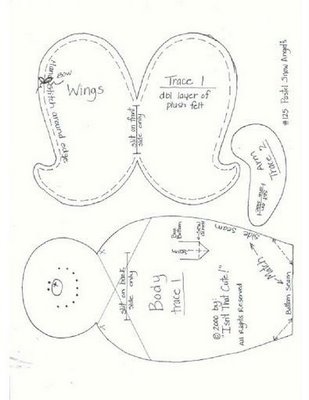 Wings
Bow
Hand stitch around edge
Trace 1
dbl layer of
plush felt
slit on front
side only
#125 Pastel Snow Angels
Arm
Trace 2
side seam
Match
Bottom Seam
Sew
Button
slit on back
side only
Body
trace 1
© 2000 by:
"Isn't That Cute!"
All Rights Reserved